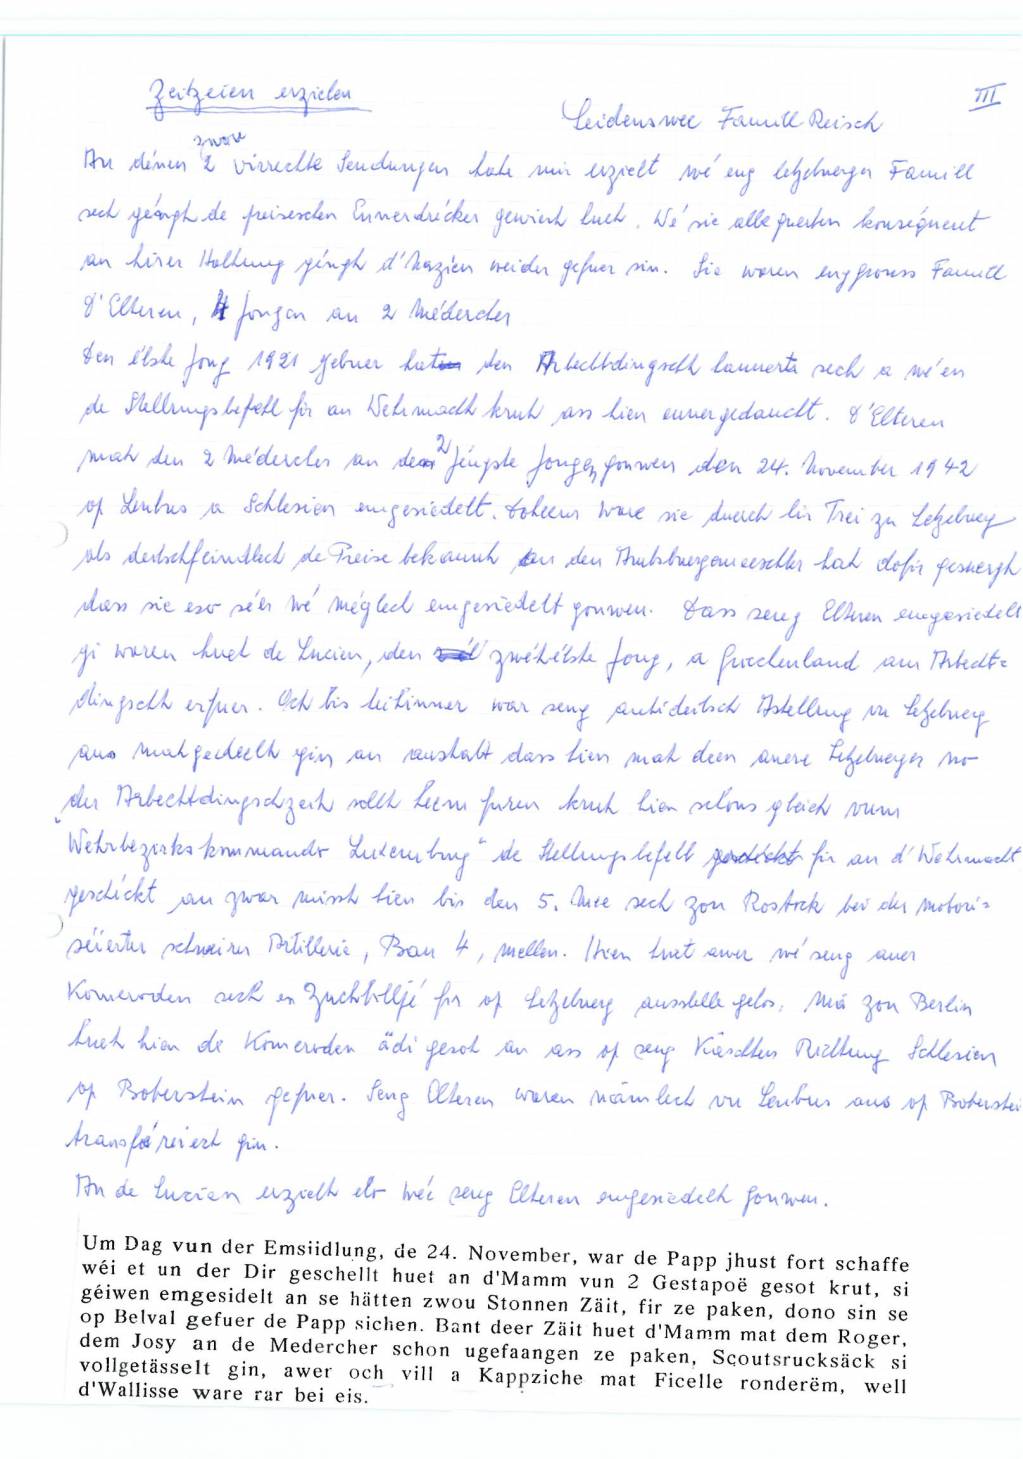 Zeitzeien erzielen
III
Leidenswee Famill Reisch
An dénen 2 zware virrechte Sendungen hate mir erzielt wé eng letzebuerger Famill
sech géingt de preiseschen Ennerdrécker gewiert huet. Wé sie alleguerten konsequent
an hirer Haltung géingt d'Nazien weider gefuer sin. Sie waren eng grouss Famill
D'Elteren, 4 Jongen an 2 Médercher
Den élste Jong 1921 gebuer hat den Arbechtsdingscht hannerts sech a wé en
de Stellungsbefehl fir an Wehrmacht krut ass hien ennergedaucht. D'Elteren
mat den 2 Médercher an de 2 jéngste Jongen gouwen den 24. November 1942
op Leubus a Schlesien emgesiedelt. Doheem ware sie duerch hir Trei zu Letzebuerg
als deitschfeindlech de Preise bekannt an den Amtsbuergemeeschter hat dofir gesuergt
dass sie eso séier wé méglech emgesiedelt gouwen. Dass seng Elteren emgesiedelt
gi waren huet de Lucien, den zwétélste Jong, a Griechenland am Arbecht=
dingscht erfuer. Och bis leihinner war seng antideitsch Astellung vu Letzebuerg
aus matgedeelt gin an anstatt dass hien mat deen anere Letzebuerger no
der Arbechtdingschtzeit sollt heem fueren krut hien schons gleich vum
"Wehrbezirkskommando Luxemburg" de Stellungsbefehl fir an d'Wehrmacht
geschéckt an zwar misst hien bis den 5. Mee sech zou Rostock bei der motori=
séierter schwéirer Artillerie, Bau 4, mellen. Hien huet awer wé seng aner
Komeroden sech en Zuchbilljé fir op Letzebuerg ausstelle gelos, mä zou Berlin
huet hien de Komeroden ädi gesot an ass op seng Käschten Richtung Schlesien
op Boberstein gefuer. Seng Elteren waren nämlech vu Leubus aus op Boberstei
transferéiert gin.
An de Lucien erzielt elo wéi seng Elteren emgesiedelt gouwen.
Um Dag vun der Emsiidlung, de 24. November, war de Papp jhust fort schaffe
wéi et un der Dir geschellt huet an d'Mamm vun 2 Gestapoë gesot krut, si
géiwen emgesidelt an se hätten zwou Stonnen Zäit, fir ze paken, dono sin se
op Belval gefuer de Papp sichen. Bant deer Zäit huet d'Mamm mat dem Roger,
dem Josy an de Medercher schon ugefaangen ze paken, Scoutsrucksäck si
vollgetässelt gin, awer och vill a Kappziche mat Ficelle ronderëm, well
d'Wallisse ware rar bei eis.